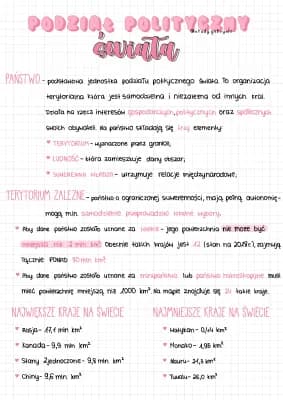 PODZIAŁ POLITYCZNY
świata
PAŃSTWO - podstawowa jednostka podziału politycznego świata. To organizacja
terytorialna która jest samodzielna i niezależna od innych krai.
Działa na rzecz interesów gospodarczych, politycznych oraz społecznych
swoich obywateli. Na państwo składają się trzy elementy:
♥ TERYTORIUM - wyznaczone przez granice,
♥ LUDNOŚĆ - która zamieszkuje dany obszar,
♥ SUWERENNA WŁADZA - utrzymuje relacje międzynarodowe,
TERYTORIUM ZALEŻNE - państwa o ograniczonej suwerenności, mają pełną autonomię-
mogą m.in. samodzielnie przeprowadzać lokalne wybory.
♥ Aby dane państwo zostało uznane za wielkie - jego powierzchnia nie może być
mniejsza niż 2 mln km². Obecnie takich krajów jest 12 (stan na 2018r.), zajmują
łącznie ponad 90 mln km².
♥ Aby dane państwo zostało uznane za minipaństwo lub państwo mikroskopijne musi
mieć powierzchnię mniejszą niż 1000 km². Na mapie znajduje się 24 takie kraje.
NAJWIĘKSZE KRAJE NA ŚWIECIE
♥ Rosja - 17,1 mln km²
♥ Kanada - 9,9 mln km²
♥ Stany Zjednoczone - 9,8 mln km²
♥ Chiny - 9,6 mln km²
NAJMNIEJSZE KRAJE NA ŚWIECIE
♥ Watykan - 0,44 km²
♥ Monako - 1,95 km²
♥ Nauru - 21,3 km²
♥ Tuvalu - 26,0 km²